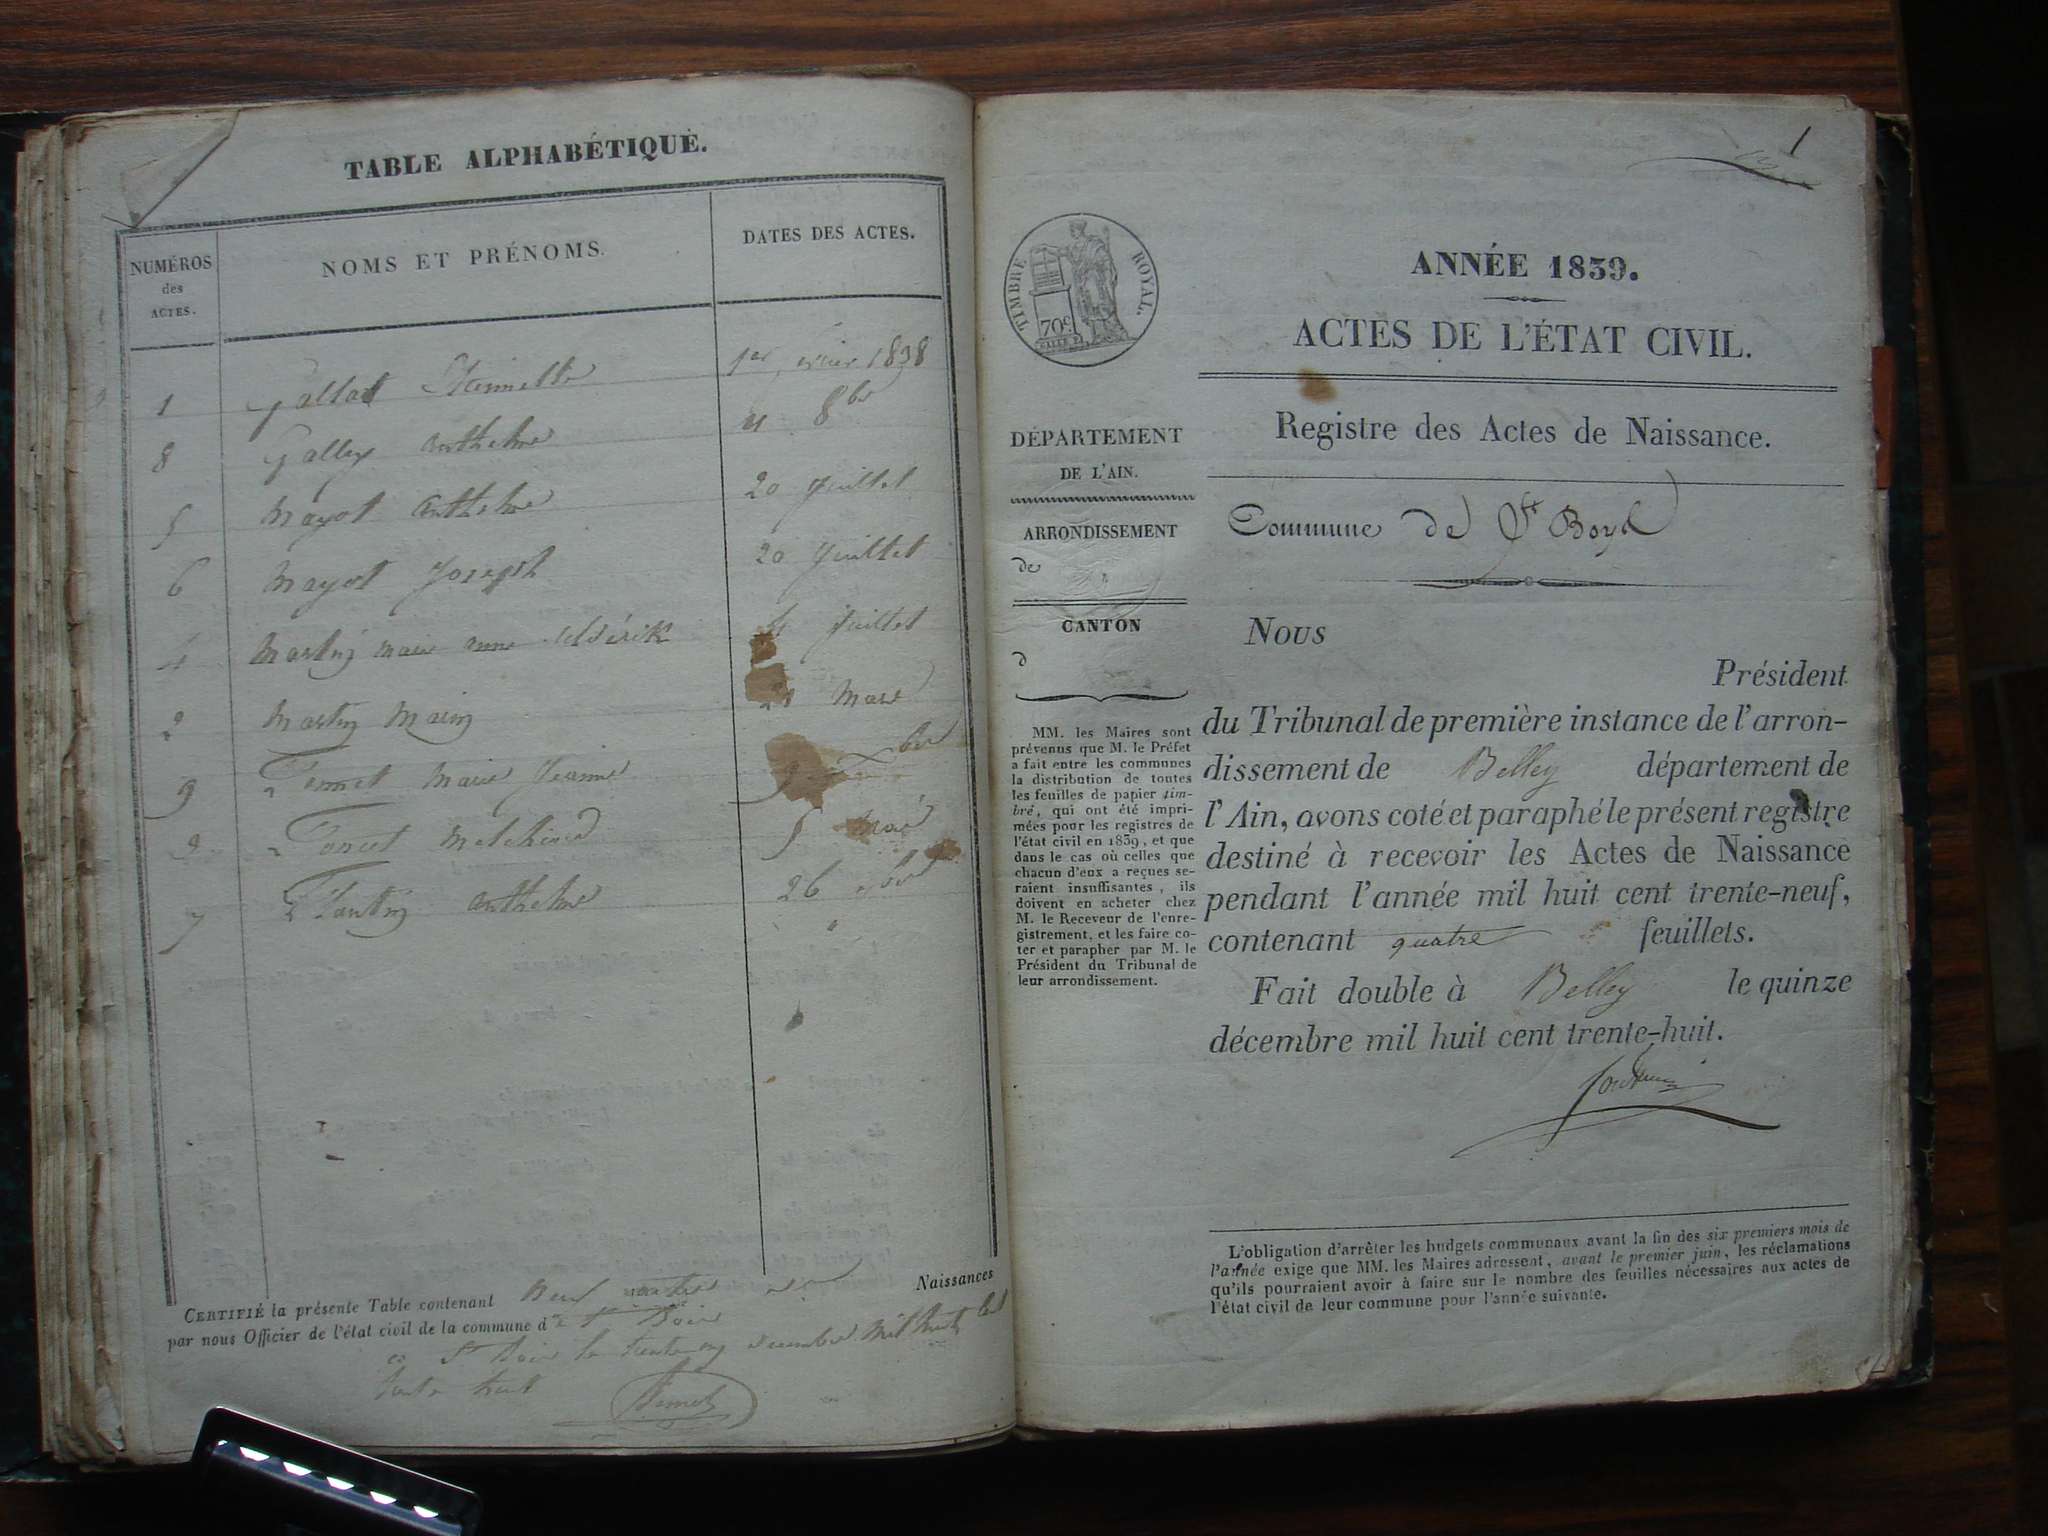 TABLE ALPHABÉTIQUE.
NUMÉROS des ACTES.
NOMS ET PRÉNOMS.
DATES DES ACTES.
1 1er 1838
8 Gallay anthelme 11 8bre
5 Mayot anthelme 20 Juillet
6 Mayot Joseph 20 Juillet
4 Martin marie anne Juillet
2 Martin Marin Mars
9 marie Jeanne
3 melchior 5
7 anthelme 26
CERTIFIÉ la présente Table contenant Naissances
par nous Officier de l'état civil de la commune de St
a St le trente un décembre mil huit cent
trente huit
1
TIMBRE ROYAL.
70c
ANNÉE 1839.
ACTES DE L'ÉTAT CIVIL.
Registre des Actes de Naissance.
Commune de St
DÉPARTEMENT
DE L'AIN.
ARRONDISSEMENT
de
CANTON
d
MM. les Maires sont
prévenus que M. le Préfet
a fait entre les communes
la distribution de toutes
les feuilles de papier tim-
bré, qui ont été impri-
mées pour les registres de
l'état civil en 1839, et que
dans le cas où celles que
chacun d'eux a reçues se-
raient insuffisantes, ils
doivent en acheter chez
M. le Receveur de l'enre-
gistrement, et les faire co-
ter et parapher par M. le
Président du Tribunal de
leur arrondissement.
Nous
Président
du Tribunal de première instance de l'arron-
dissement de Belley département de
l'Ain, avons coté et paraphé le présent registre
destiné à recevoir les Actes de Naissance
pendant l'année mil huit cent trente-neuf,
contenant quatre feuillets.
Fait double à Belley le quinze
décembre mil huit cent trente-huit.
L'obligation d'arrêter les budgets communaux avant la fin des six premiers mois de
l'année exige que MM. les Maires adressent, avant le premier juin, les réclamations
qu'ils pourraient avoir à faire sur le nombre des feuilles nécessaires aux actes de
l'état civil de leur commune pour l'année suivante.